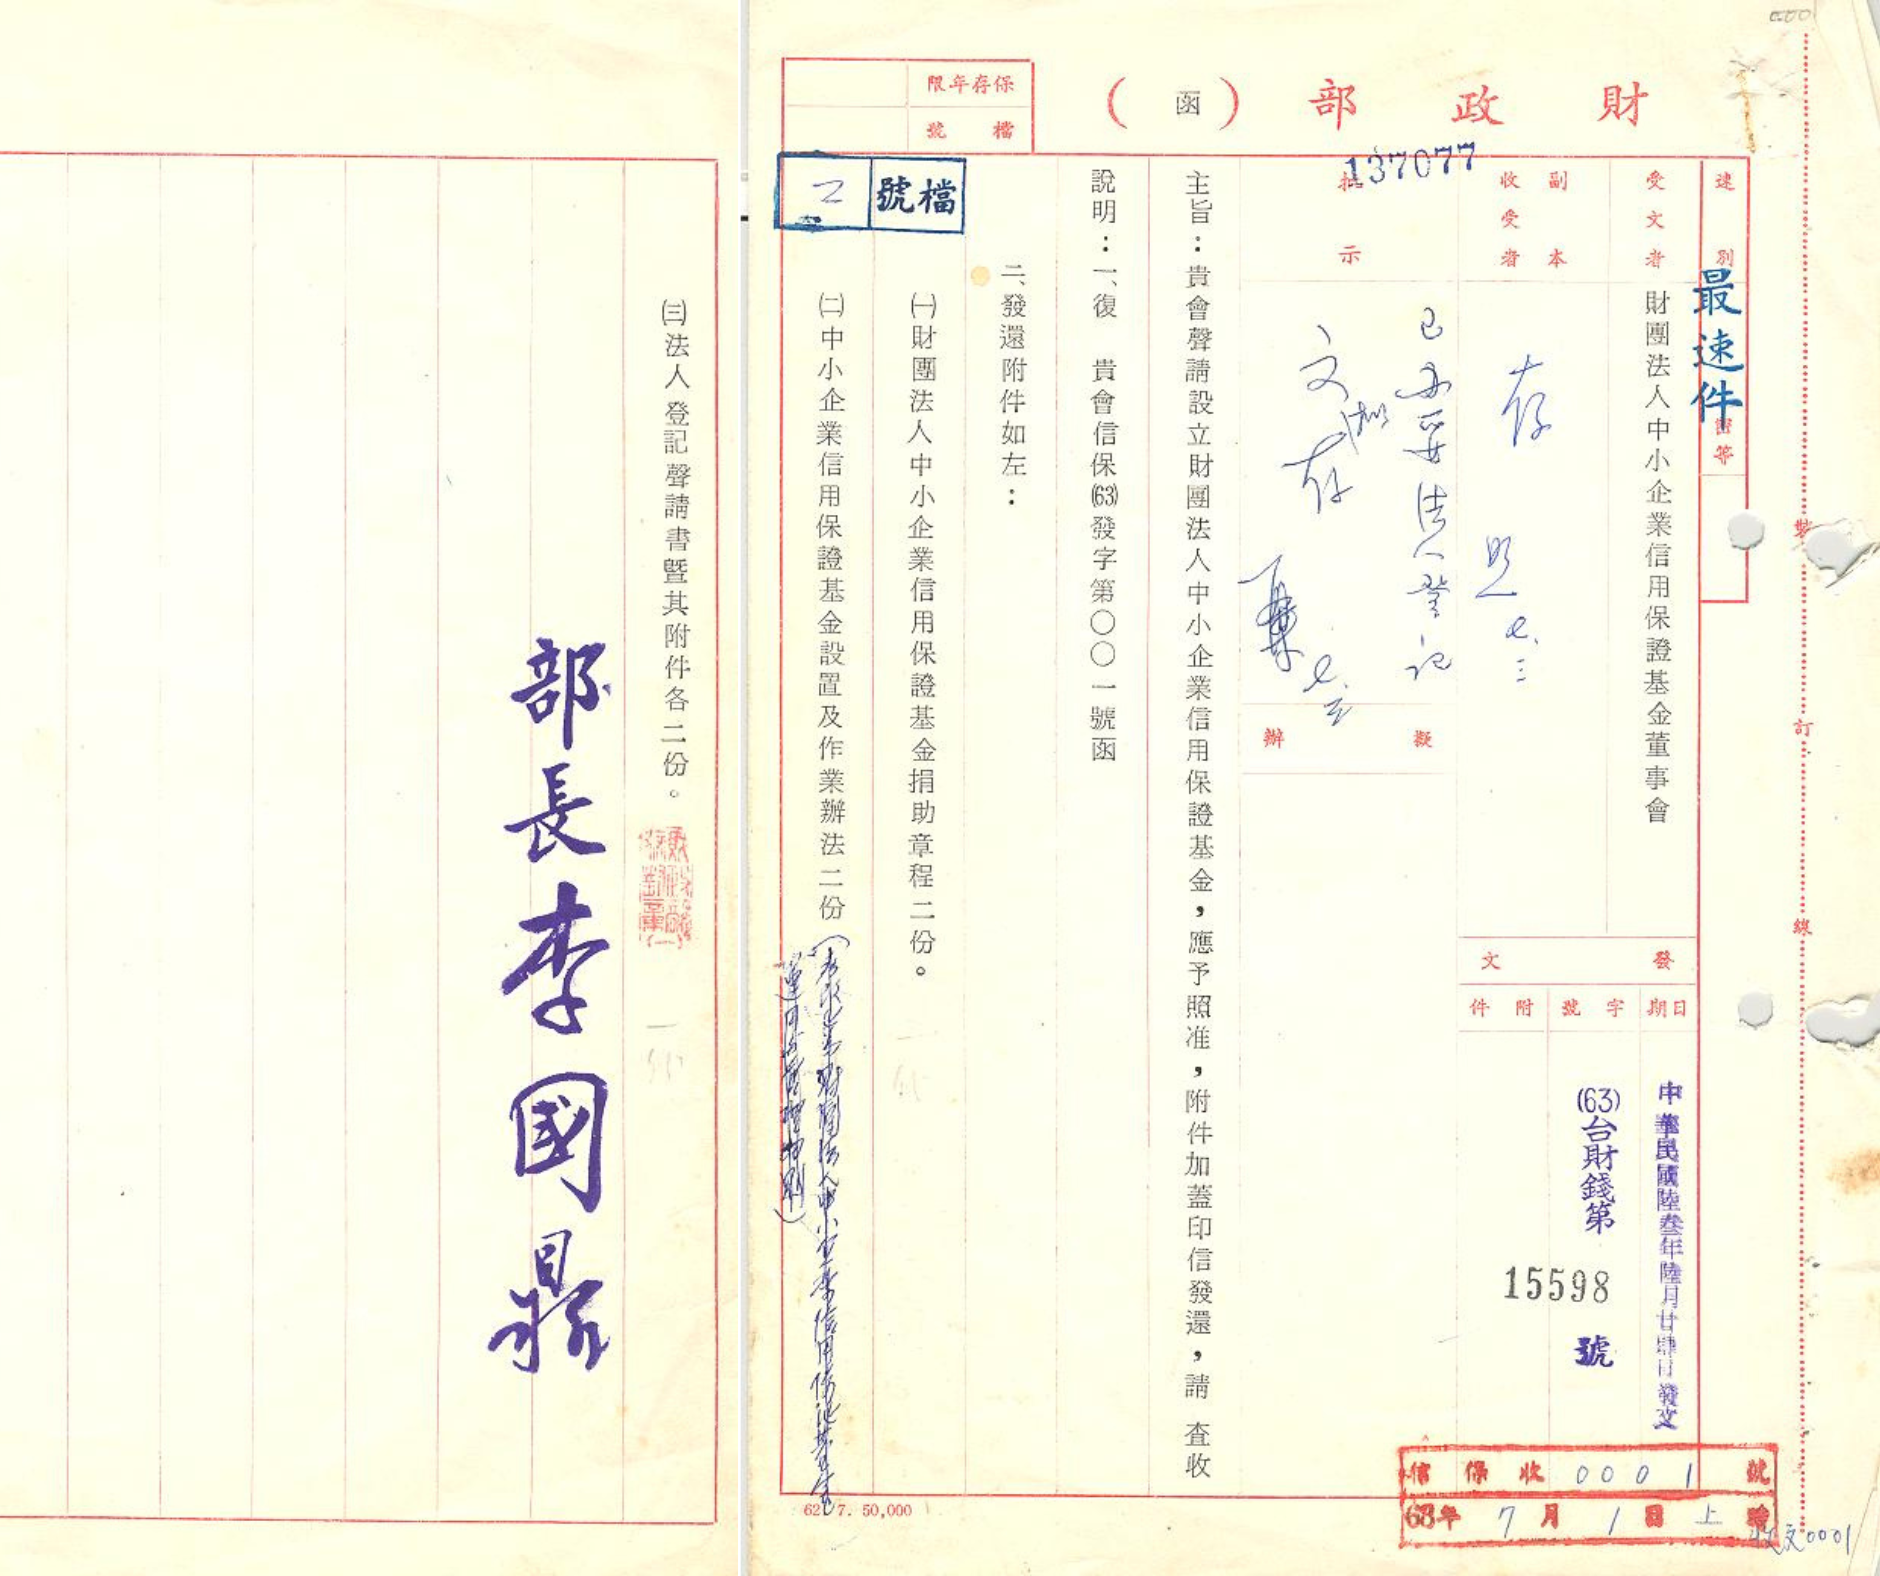 財政部(函)
保存年限
檔號
137077
速別
最速件
密等
受文者
財團法人中小企業信用保證基金董事會
副本
收受者
存
批示
已辦妥法人登記
文
存
擬辦
發文
日期
字號
附件
中華民國陸叁年陸月廿肆日發文
(63)台財錢第
15598
號
主旨:貴會聲請設立財團法人中小企業信用保證基金,應予照准,附件加蓋印信發還,請 查收
說明:一、復 貴會信保(63)發字第〇〇一號函
二、發還附件如左:
㈠財團法人中小企業信用保證基金捐助章程二份。
㈡中小企業信用保證基金設置及作業辦法二份
檔號
㈢法人登記聲請書暨其附件各二份。
部長李國鼎
裝
訂
線
信保收0001號
63年7月1日上
收文0001
62. 7. 50,000